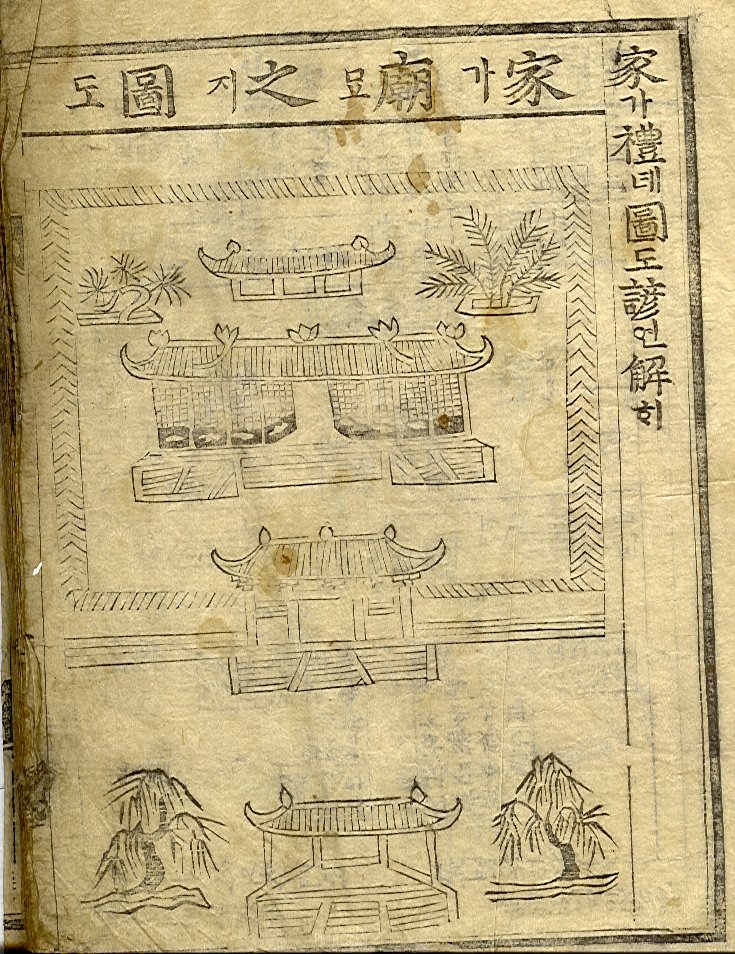 家가禮례圖도諺언解ᄒᆡ
家가廟묘之지圖도